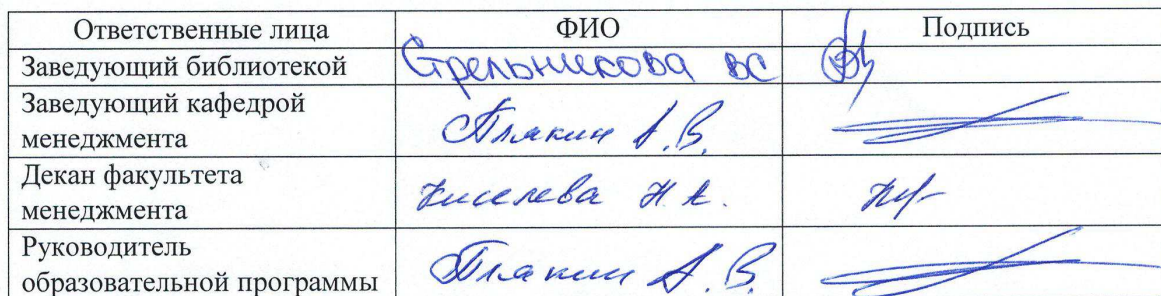 Ответственные лица ФИО Подпись
Заведующий библиотекой Стрельникова ВС
Заведующий кафедрой
менеджмента Плякин А.В.
Декан факультета
менеджмента Киселева Н.А.
Руководитель
образовательной программы Плякин А.В.